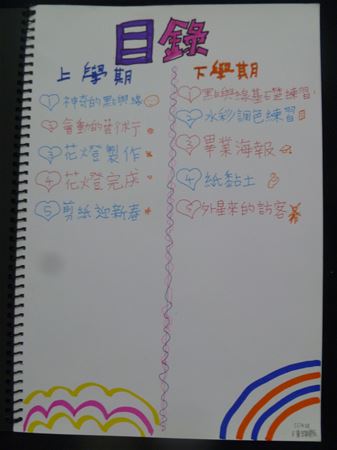 目錄
上學期
1 神奇的點與線
2 會動的藝術行
3 花燈製作
4 花燈完成
5 剪紙迎新春
下學期
1 點與線基礎練習
2 水彩調色練習
3 畢業海報
4 紙黏土
5 外星來的訪客